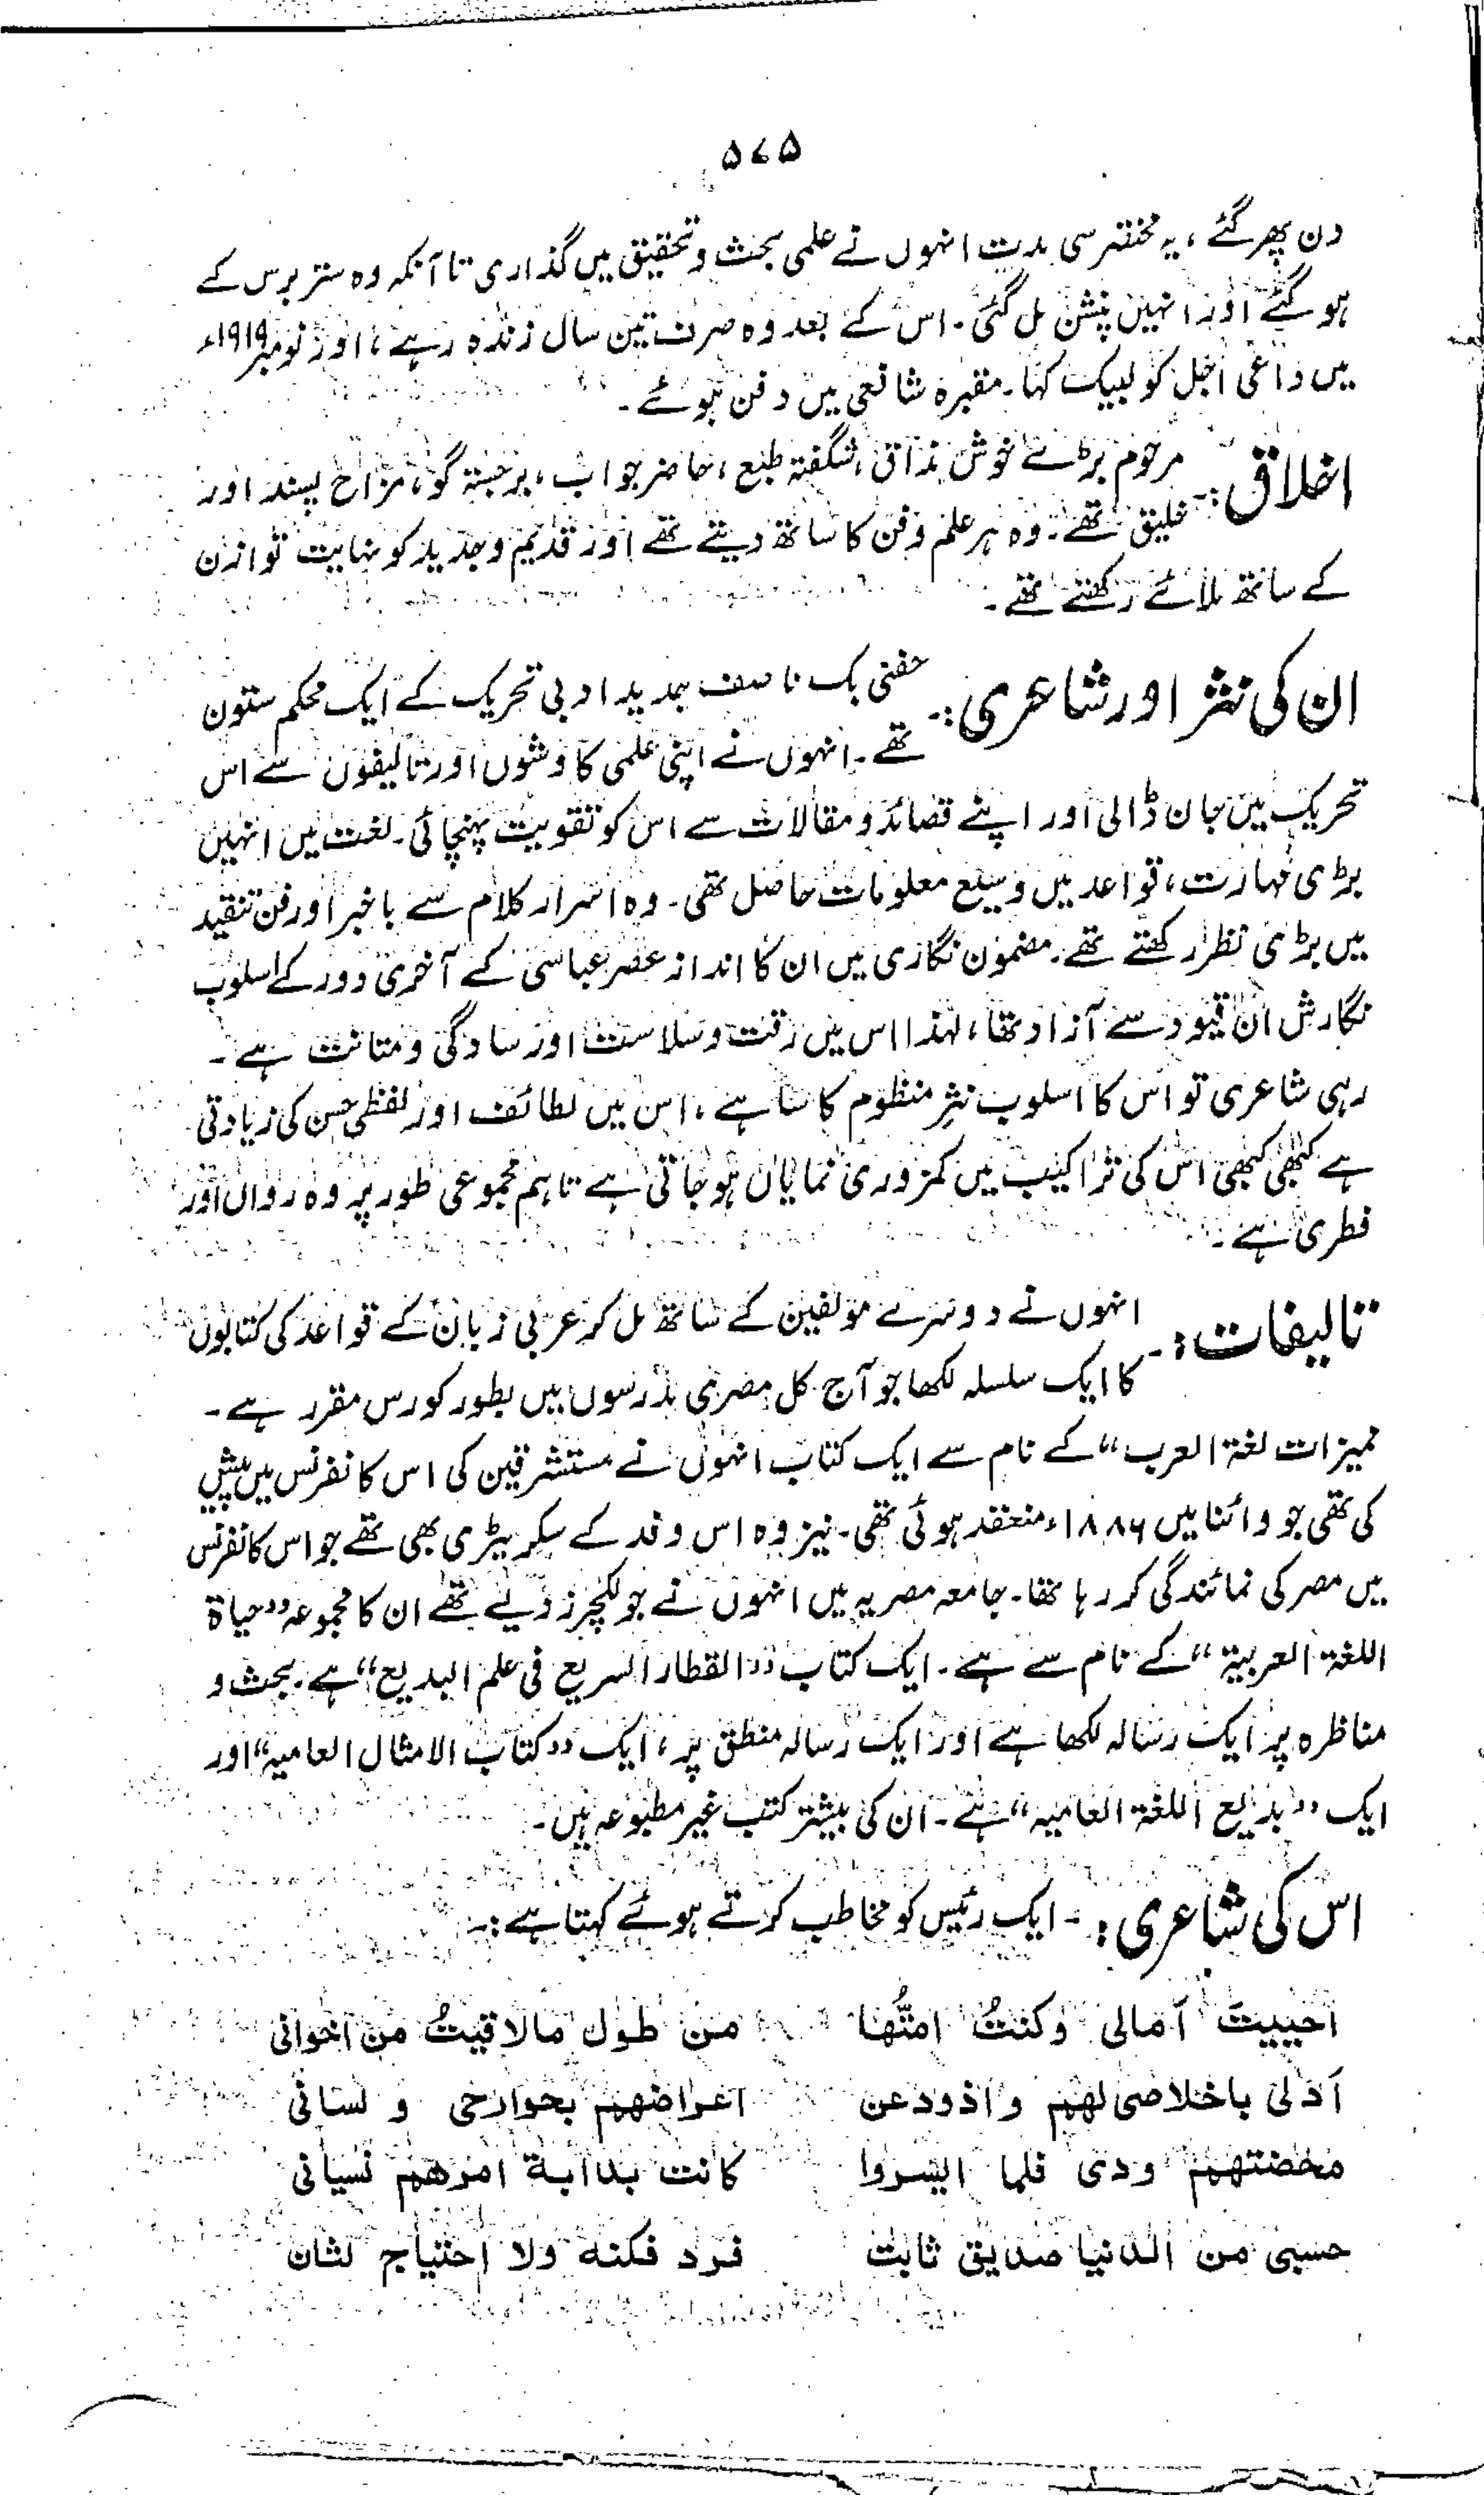 ۵۷۵
دن پھر گئے، یہ مختصر سی مدت انہوں نے علمی بحث و تحقیق میں گذاری تا آنکہ وہ ستر برس کے
ہو گئے اور انہیں پنشن مل گئی۔ اس کے بعد وہ صرف تین سال زندہ رہے، اور نومبر ۱۹۱۹ء
میں داعی اجل کو لبیک کہا۔ مقبرہ شافعی میں دفن ہوئے۔
اخلاق:۔ مرحوم بڑے خوش مذاق، شگفتہ طبع، حاضر جواب، برجستہ گو، مزاح پسند اور
خلیق تھے۔ وہ ہر علم و فن کا ساتھ دیتے تھے اور قدیم و جدید کو نہایت توازن
کے ساتھ ملائے رکھتے تھے۔
ان کی نثر اور شاعری:۔ حفنی بک ناصف جدید ادبی تحریک کے ایک محکم ستون
تھے۔ انہوں نے اپنی علمی کاوشوں اور تالیفوں سے اس
تحریک میں جان ڈالی اور اپنے قصائد و مقالات سے اس کو تقویت پہنچائی۔ لغت میں انہیں
بڑی مہارت، قواعد میں وسیع معلومات حاصل تھی۔ وہ اسرار کلام سے باخبر اور فن تنقید
میں بڑی نظر رکھتے تھے۔ مضمون نگاری میں ان کا انداز عصر عباسی کے آخری دور کے اسلوب
نگارش ان قیود سے آزاد تھا، لہٰذا اس میں رقت و سلاست اور سادگی و متانت ہے۔
رہی شاعری تو اس کا اسلوب نثر منظوم کا سا ہے، اس میں لطائف اور لفظی حسن کی زیادتی
ہے کبھی کبھی اس کی تراکیب میں کمزوری نمایاں ہو جاتی ہے تاہم مجموعی طور پر وہ رواں اور
فطری ہے۔
تالیفات:۔ انہوں نے دوسرے مولفین کے ساتھ مل کر عربی زبان کے قواعد کی کتابوں
کا ایک سلسلہ لکھا جو آج کل مصری مدرسوں میں بطور کورس مقرر ہے۔
ممیزات لغۃ العرب“ کے نام سے ایک کتاب انہوں نے مستشرقین کی اس کانفرنس میں پیش
کی تھی جو وائنا میں ۱۸۸۶ء منعقد ہوئی تھی۔ نیز وہ اس وفد کے سکریٹری بھی تھے جو اس کانفرنس
میں مصر کی نمائندگی کر رہا تھا۔ جامعہ مصریہ میں انہوں نے جو لکچرز دیے تھے ان کا مجموعہ ”حیاۃ
اللغۃ العربیۃ“ کے نام سے ہے۔ ایک کتاب ”القطار السریع فی علم البدیع“ ہے۔ بحث و
مناظرہ پر ایک رسالہ لکھا ہے اور ایک رسالہ منطق پر، ایک ”کتاب الامثال العامیہ“ اور
ایک ”بدیع اللغۃ العامیہ“ ہے۔ ان کی بیشتر کتب غیر مطبوعہ ہیں۔
اس کی شاعری:۔ ایک رئیس کو مخاطب کرتے ہوئے کہتا ہے:۔
احییتَ آمالی وکنتُ امتُّها من طول مالاقیتُ من اخوانی
أدلی باخلاصی لهم واذود عن اعراضهم بجوارحی و لسانی
محضتهم ودی فلما ایسروا کانت بدایة امرهم نسیانی
حسبی من الدنیا صدیق ثابت فرد فکنه ولا احتیاج لثان